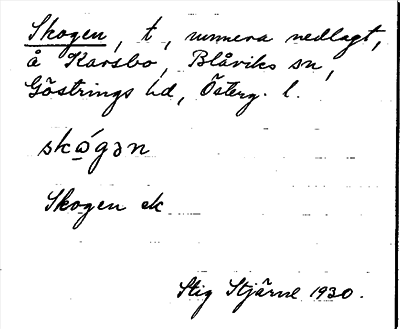 Skogen, t, numera nedlagt,
å Karsbo, Blåviks sn,
Göstrings hd, Österg. l.
skǫ́gən
Skogen ek
Stig Stjärne 1930.